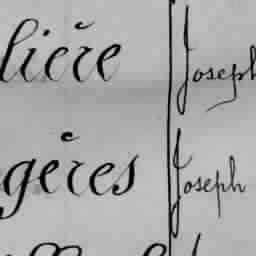 lière Joseph
gères Joseph